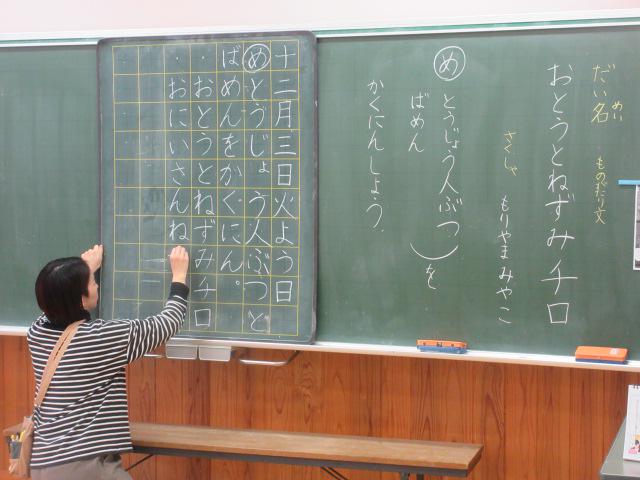 だい名 ものがたり文
めい
おとうとねずみチロ
さくしゃ もりやまみやこ
め とうじょう人ぶつ
ばめん
を
かくにんしよう。
十二月三日火よう日
めとうじょう人ぶつと
ばめんをかくにん。
・おとうとねずみチロ
・おにいさんね